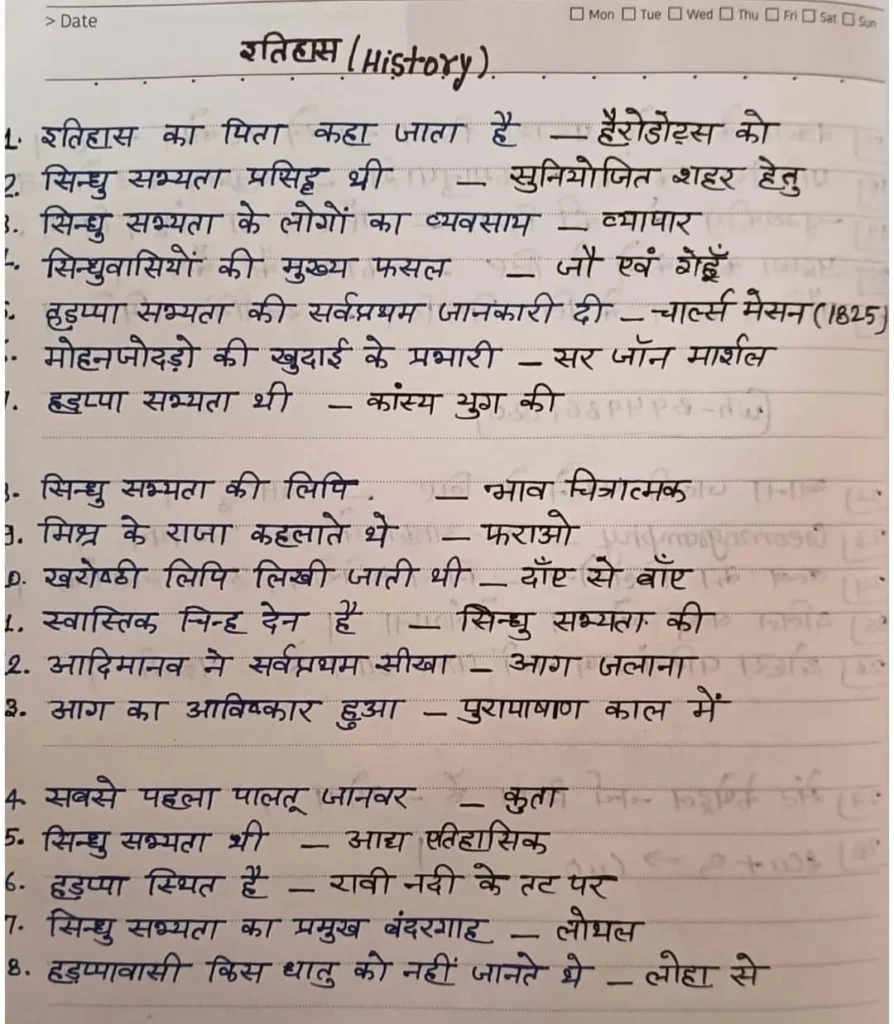 > Date
☐ Mon ☐ Tue ☐ Wed ☐ Thu ☐ Fri ☐ Sat ☐ Sun
इतिहास (History)
1. इतिहास का पिता कहा जाता है — हैरोडोट्स को
2. सिन्धु सभ्यता प्रसिद्ध थी — सुनियोजित शहर हेतु
3. सिन्धु सभ्यता के लोगों का व्यवसाय — व्यापार
4. सिन्धुवासियों की मुख्य फसल — जौ एवं गेहूँ
5. हड़प्पा सभ्यता की सर्वप्रथम जानकारी दी — चार्ल्स मेसन (1825)
6. मोहनजोदड़ो की खुदाई के प्रभारी — सर जॉन मार्शल
7. हड़प्पा सभ्यता थी — कांस्य युग की
8. सिन्धु सभ्यता की लिपि. — भाव चित्रात्मक
9. मिश्र के राजा कहलाते थे — फराओ
0. खरोष्ठी लिपि लिखी जाती थी — दाँए से बाँए
1. स्वास्तिक चिन्ह देन है — सिन्धु सभ्यता की
2. आदिमानव ने सर्वप्रथम सीखा — आग जलाना
3. आग का आविष्कार हुआ — पुरापाषाण काल में
4. सबसे पहला पालतू जानवर — कुता
5. सिन्धु सभ्यता थी — आद्य एतिहासिक
6. हड़प्पा स्थित है — रावी नदी के तट पर
7. सिन्धु सभ्यता का प्रमुख बंदरगाह — लोथल
8. हड़प्पावासी किस धातु को नहीं जानते थे — लोहा से